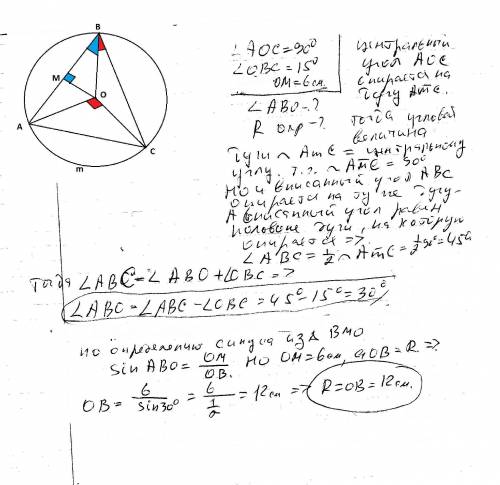 B
M
O
A
C
m
∠AOC=90°
∠OBC=15°
OM=6см.
∠ABO-?
R опр-?
центральный
угол AOC
опирается на
дугу AmC.
тогда угловая
величина
дуги ◠AmC = центральному
углу, т.е. ◠AmC = 90°
Но и вписанный угол ABC
опирается на ту же дугу.
А вписанный угол равен
половине дуги, на которую
опирается =>
∠ABC = 1/2 ◠AmC = 1/2 90° = 45°
Тогда ∠ABC = ∠ABO + ∠OBC =>
∠ABO = ∠ABC - ∠OBC = 45° - 15° = 30°
по определению синуса из Δ BMO
sin ABO = OM/OB. Но OM=6см, а OB=R =>
OB = 6/sin30° = 6/(1/2) = 12см => R=OB=12см.